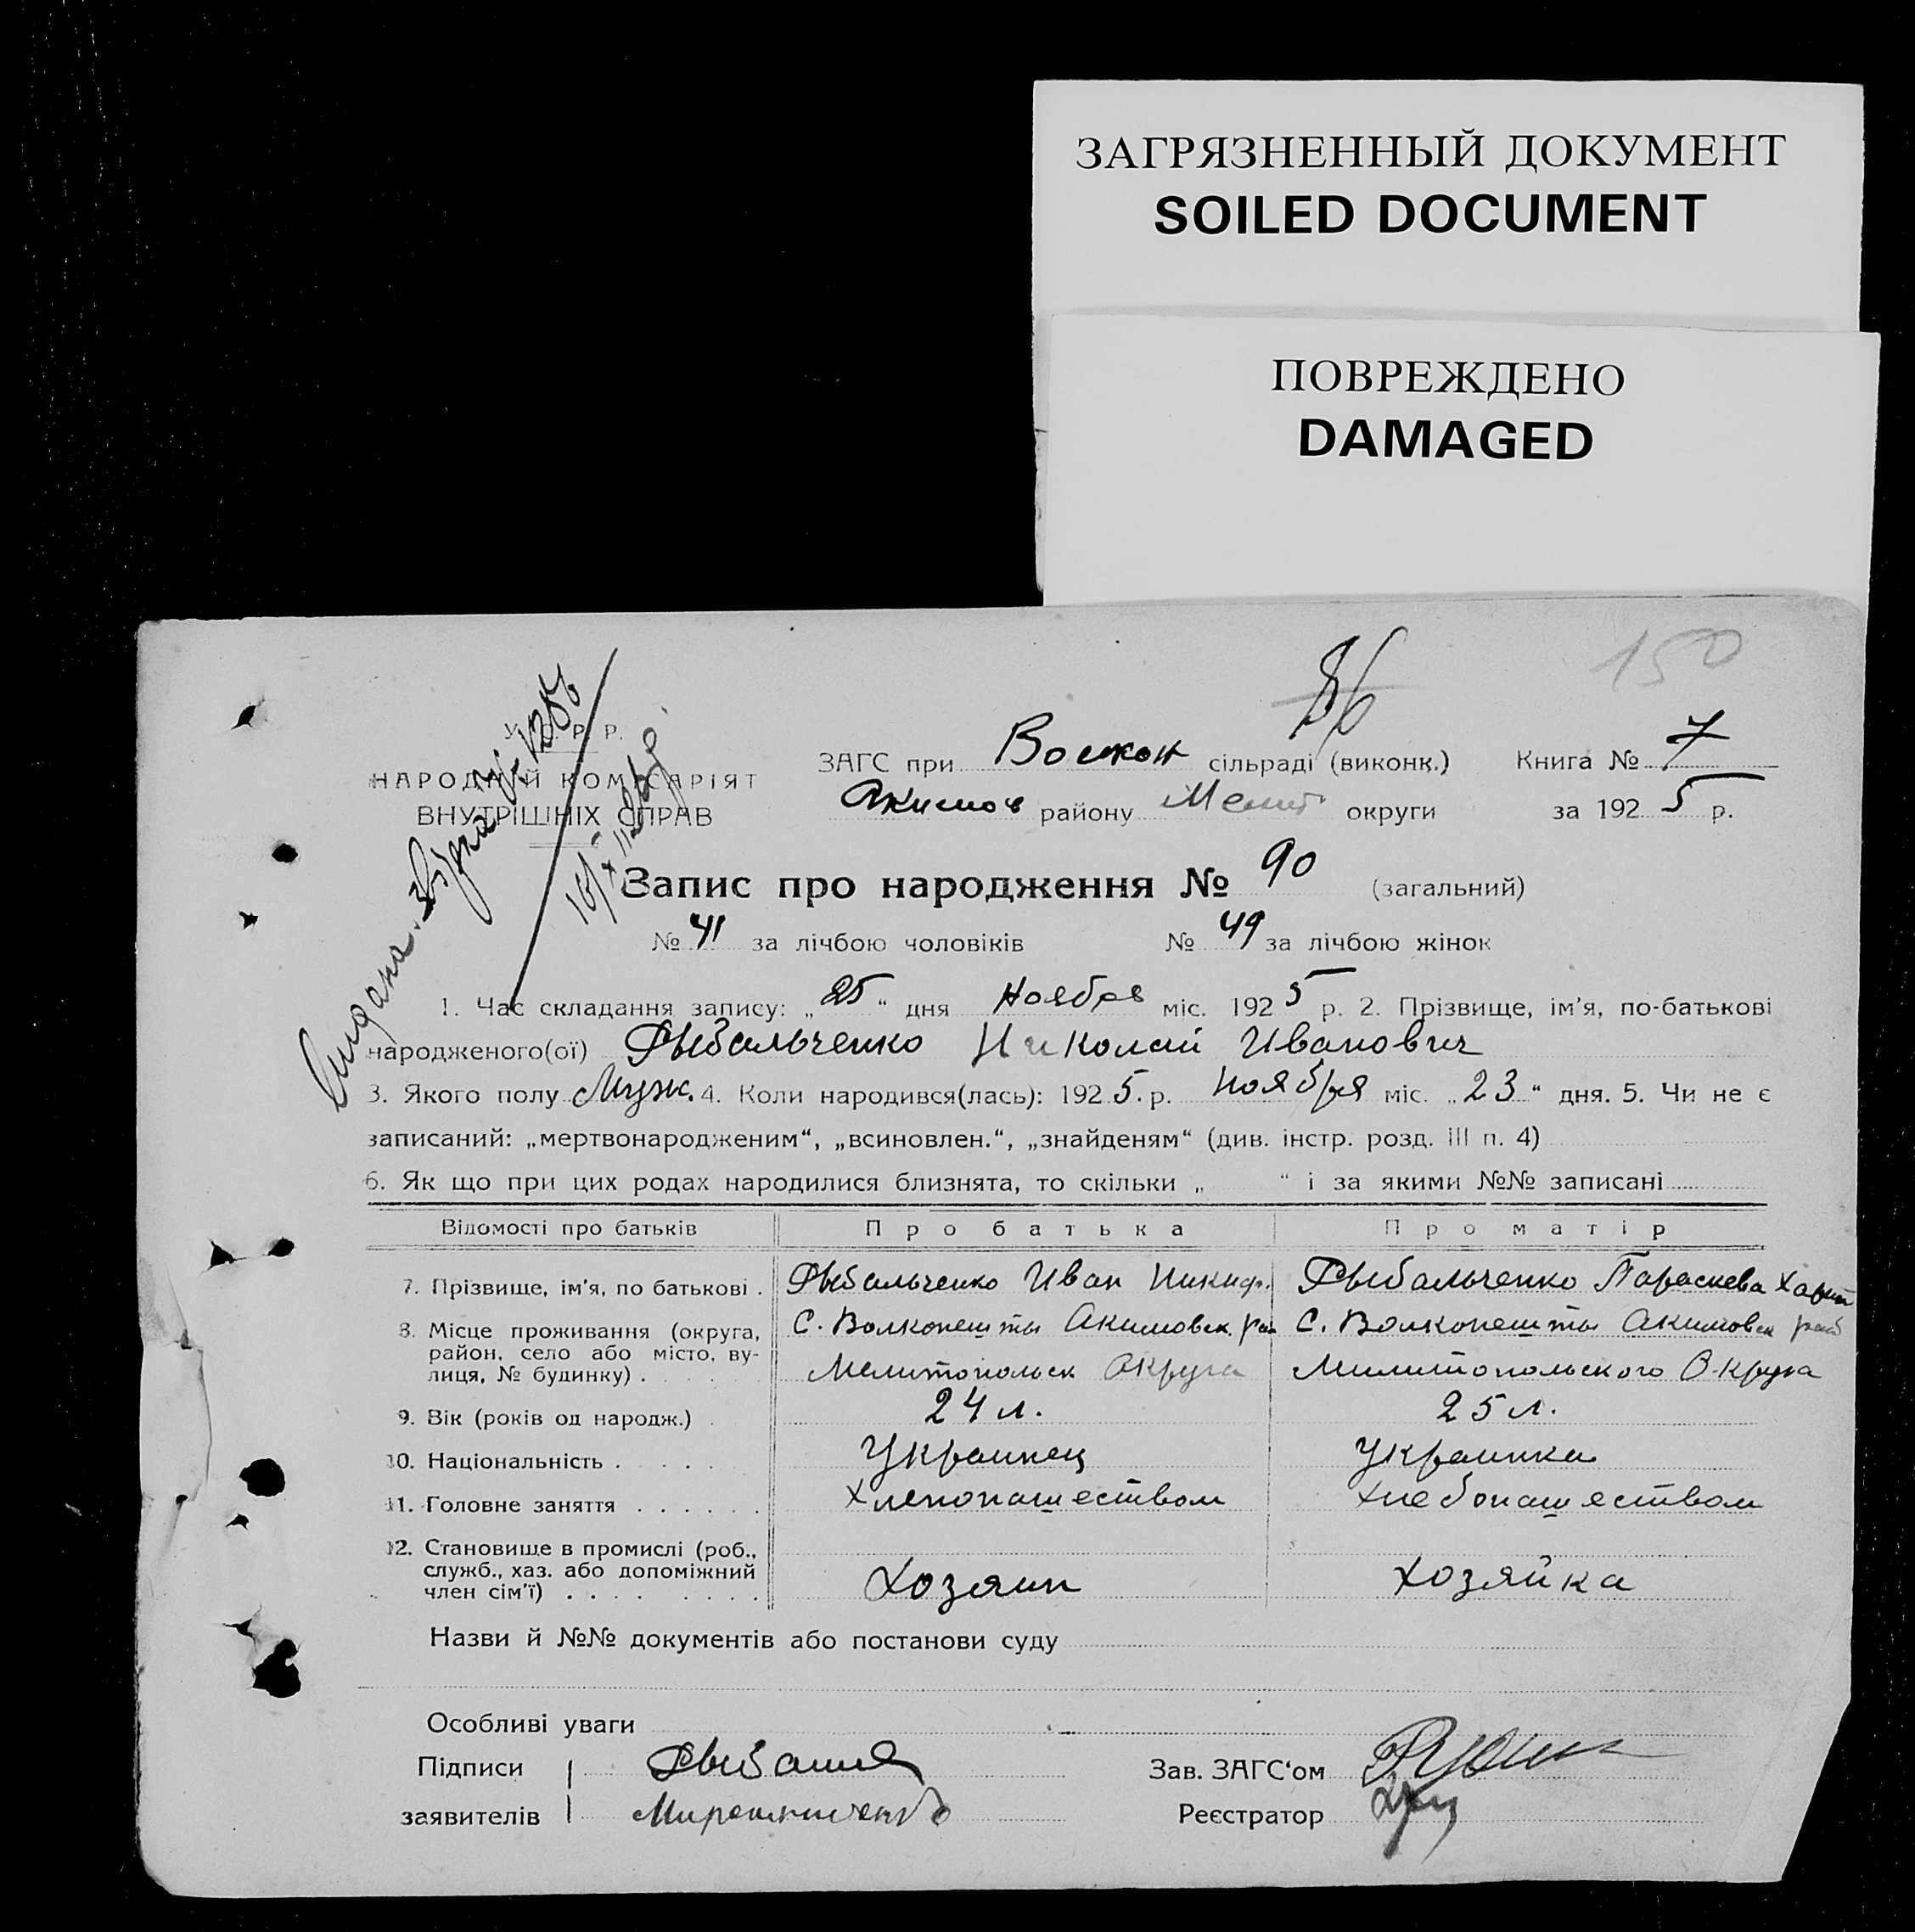 ЗАГРЯЗНЕННЫЙ ДОКУМЕНТ
SOILED DOCUMENT
ПОВРЕЖДЕНО
DAMAGED
150
86
У. С. Р. Р.
НАРОДНІЙ КОМІСАРІЯТ
ВНУТРІШНІХ СПРАВ
ЗАГС при Волкон сільраді (виконк.) Книга № 7
Акимов району Мелит округи за 1925 р.
Запис про народження № 90 (загальний)
№ 41 за лічбою чоловіків № 49 за лічбою жінок
1. Час складання запису: „25“ дня Ноября міс. 1925 р. 2. Прізвище, ім'я, по-батькові
народженого(ої) Рыбальченко Николай Иванович
3. Якого полу Муж. 4. Коли народився(лась): 1925. р. ноября міс. „23“ дня. 5. Чи не є
записаний: „мертвонародженим“, „всиновлен.“, „знайденям“ (див. інстр. розд. III п. 4)
6. Як що при цих родах народилися близнята, то скільки „ “ і за якими №№ записані
Відомості про батьків Про батька Про матір
7. Прізвище, ім'я, по батькові . Рыбальченко Иван Никиф. Рыбальченко Параскева Харит
8. Місце проживання (округа, район, село або місто, вулиця, № будинку) . С. Волконешты Акимовск. рай С. Волконешты Акимовск рай
Мелитопольск Округа Милитопольского Округа
9. Вік (років од народж.) . 24 л. 25 л.
10. Національність . . . . Украинец Украинка
11. Головне заняття . . . . . . Хлепопашеством Хлебопашеством
12. Становище в промислі (роб., служб., хаз. або допоміжний член сім'ї) . . . . Хозяин Хозяйка
Назви й №№ документів або постанови суду
Особливі уваги
Підписи Зав. ЗАГС'ом
заявителів Мирошниченко Реєстратор